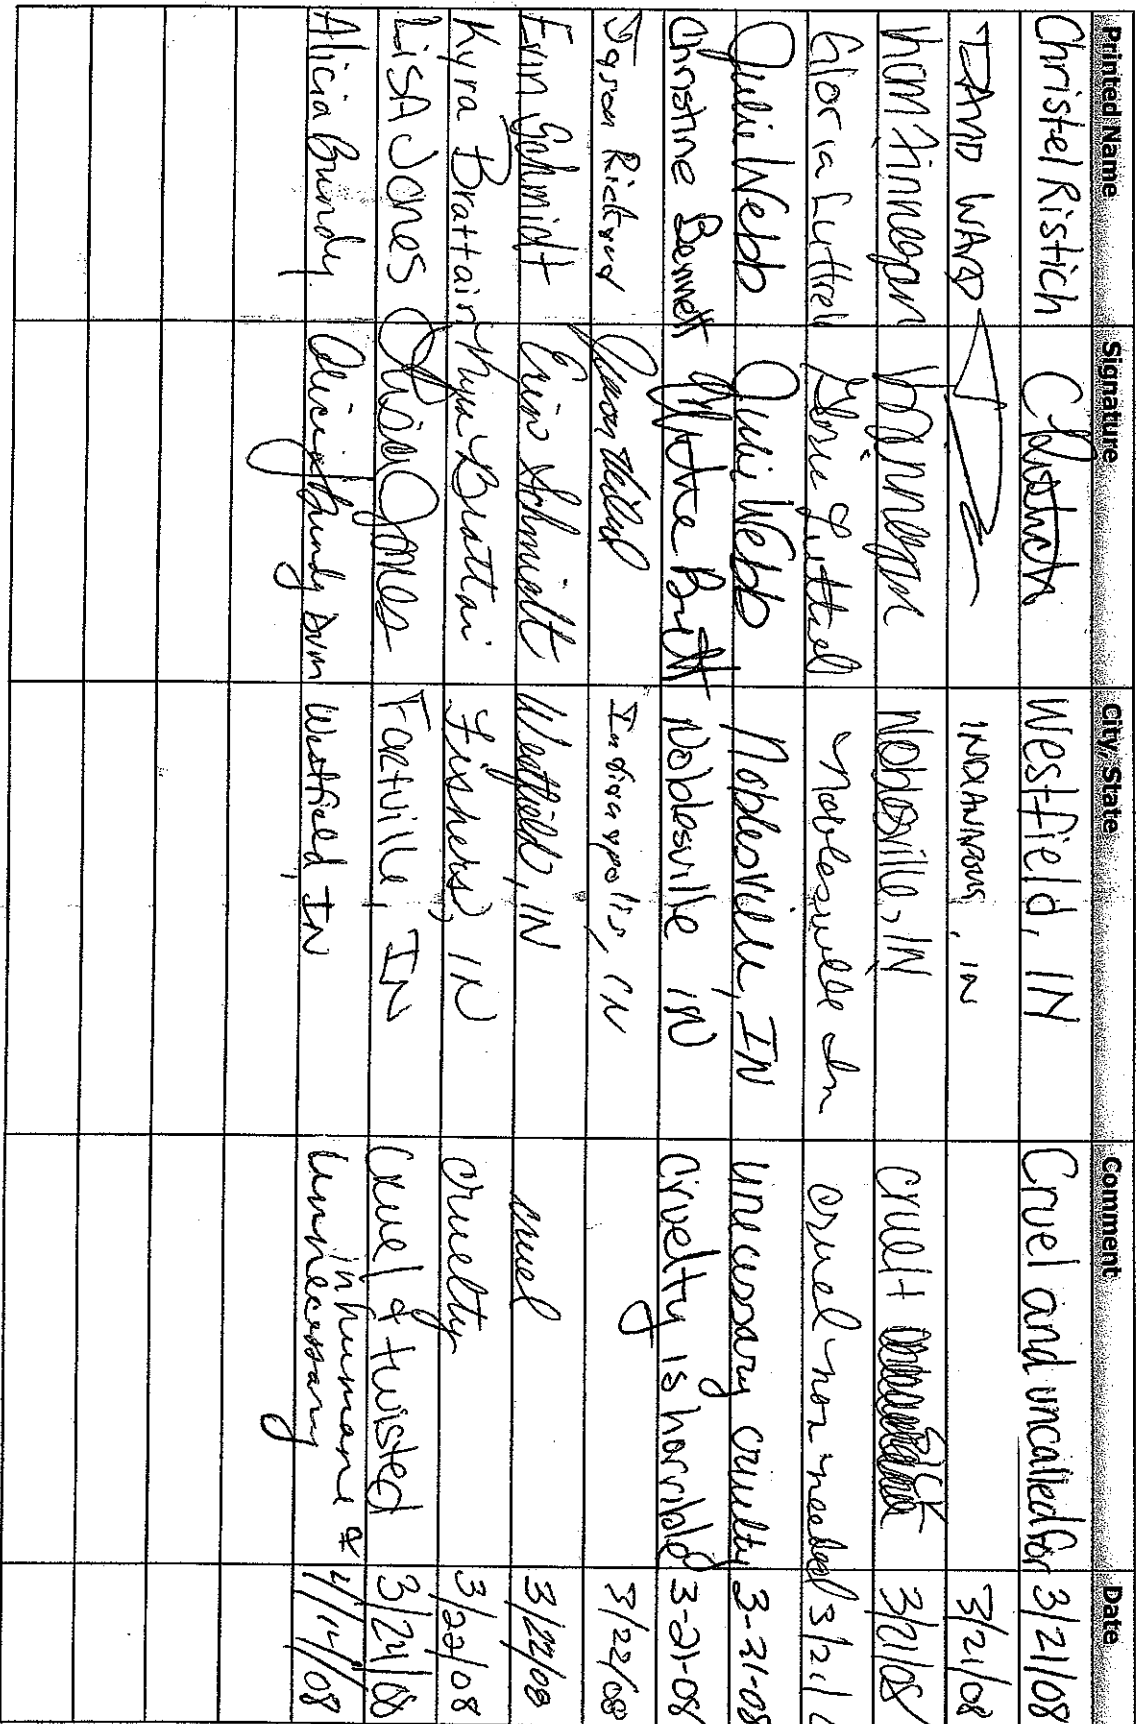 Printed Name Signature City, State Comment Date
Christel Ristich Westfield, IN Cruel and uncalled for 3/21/08
WARD INDIANAPOLIS, IN 3/21/08
Kim Finnegan Noblesville, IN cruel + SICK 3/21/08
Gloria Luttrell Gloria Luttrell Noblesville In cruel - non needed 3/21/
Julie Webb Julie Webb Noblesville, IN unecessary cruelty 3-21-08
Christine Bennett Noblesville IN Cruelty is horrible 3-21-08
Jason Indianapolis, IN 3/22/08
Erin Schmidt Erin Schmidt Westfield, IN cruel 3/22/08
Kyra Brattain Kyra Brattain Fishers, IN cruelty 3/22/08
LISA Jones Jones Fortville, IN Cruel & twisted 3/24/08
Alicia Bundy Alicia Bundy DVM Westfield, IN inhumane &
unnecessary /08